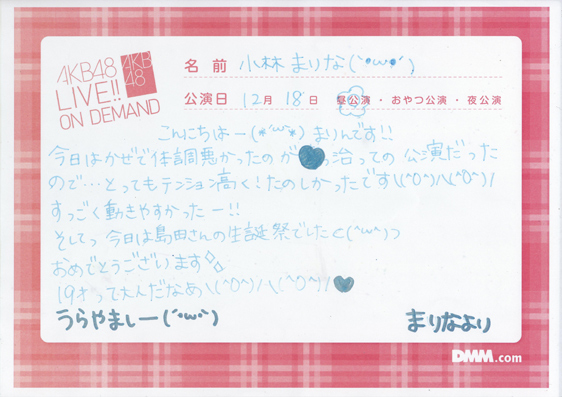 AKB48
LIVE!!
ON DEMAND
AKB
48
名前 小林まりな(´•ω•`)
公演日 12月18日 昼公演・おやつ公演・夜公演
こんにちはー(*´ω`*)まりんです!!
今日はかぜで体調悪かったのが♥っ治っての公演だった
ので…とってもテンション高く!たのしかったです\(^O^)/\(^O^)/
すっごく動きやすかったー!!
そしてっ今日は島田さんの生誕祭でしたc(^ω^)っ
おめでとうございます
19才って大人だなあ\(^O^)/\(^O^)/♥
うらやましー(´•ω•`)
まりなより
DMM.com